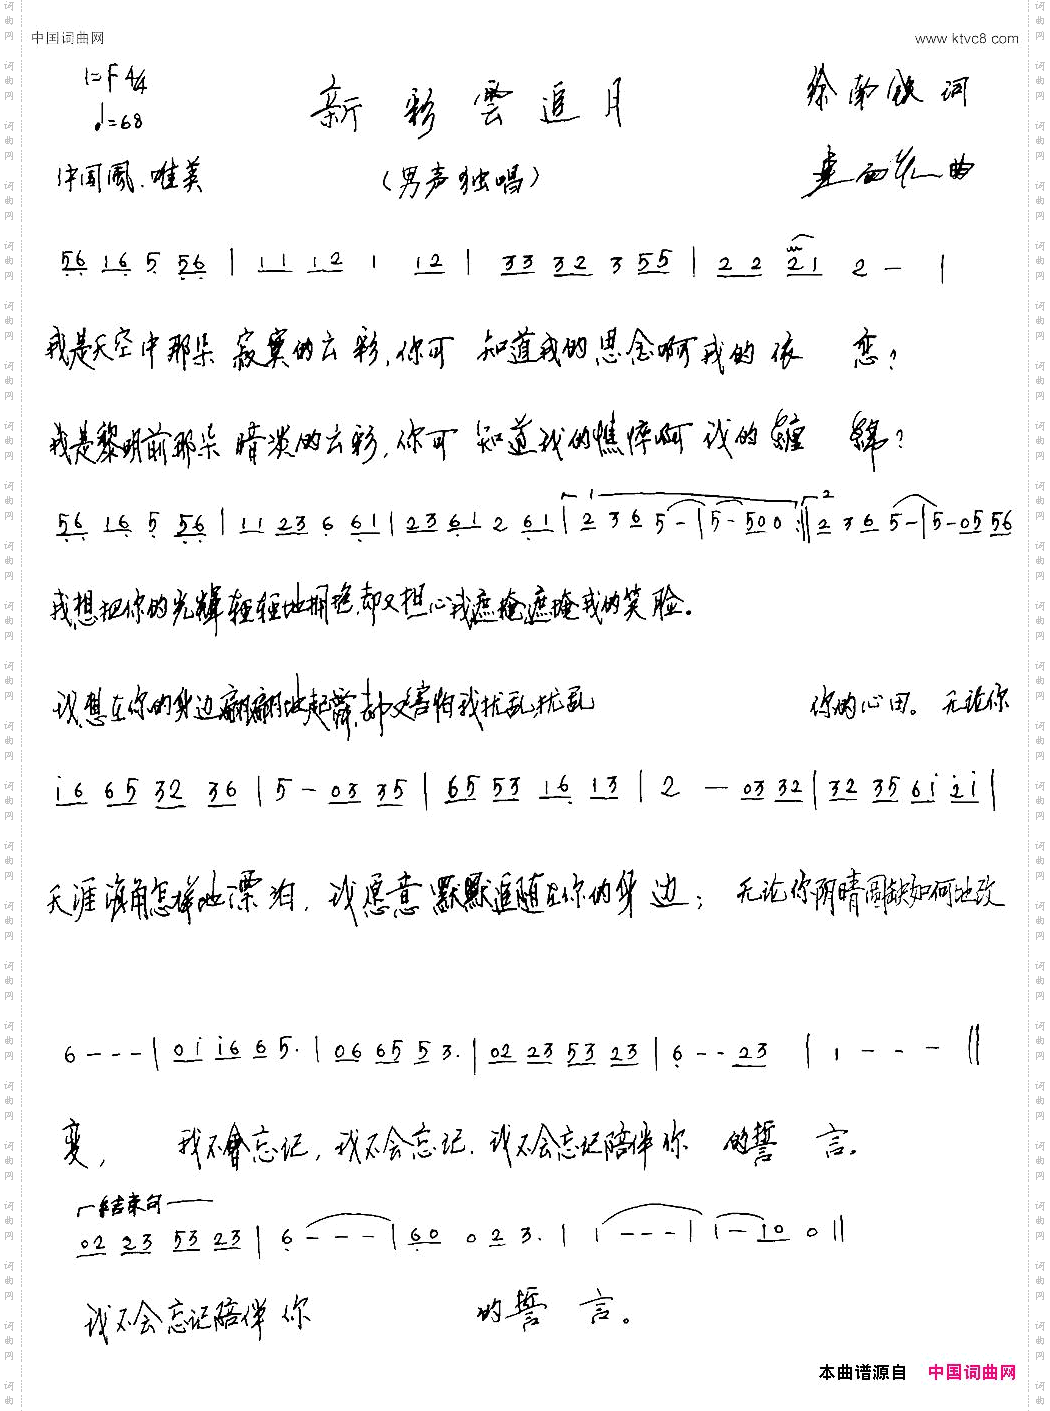 中国词曲网 www.ktvc8.com
1=F 4/4
新彩雲追月
徐南铁 词
♩=68
中国風.唯美
(男声独唱)
曲
56 16 5 56 | 11 12 1 12 | 33 32 3 55 | 22 21 2 - |
我是天空中那朵寂寞的云彩,你可知道我的思念啊我的依恋?
我是黎明前那朵暗淡的云彩,你可知道我的憔悴啊我的纏綿?
56 16 5 56 | 11 23 6 61 | 23 61 2 61 | 1 2 36 5 - | 5 - 500 :‖ 2 2 36 5 - | 5 - 05 56
我想把你的光輝轻轻地拥抱,却又担心我遮掩遮掩我的笑脸。
我想在你的身边翩翩地起舞,却又害怕我扰乱扰乱 你的心田。无论你
i6 65 32 36 | 5 - 03 35 | 65 53 16 13 | 2 - 03 32 | 32 35 6i 2i |
天涯海角怎样地漂泊,我愿意默默追随在你的身边;无论你阴晴圆缺如何地改
6 - - - | 0i i6 6 5. | 06 65 5 3. | 02 23 53 23 | 6 - - 23 | 1 - - - ‖
变,我不會忘记,我不会忘记.我不会忘记陪伴你的誓言。
结束句
02 23 53 23 | 6 - - - | 60 0 2 3. | 1 - - - | 1 - 10 0 ‖
我不会忘记陪伴你的誓言。
本曲谱源自 中国词曲网